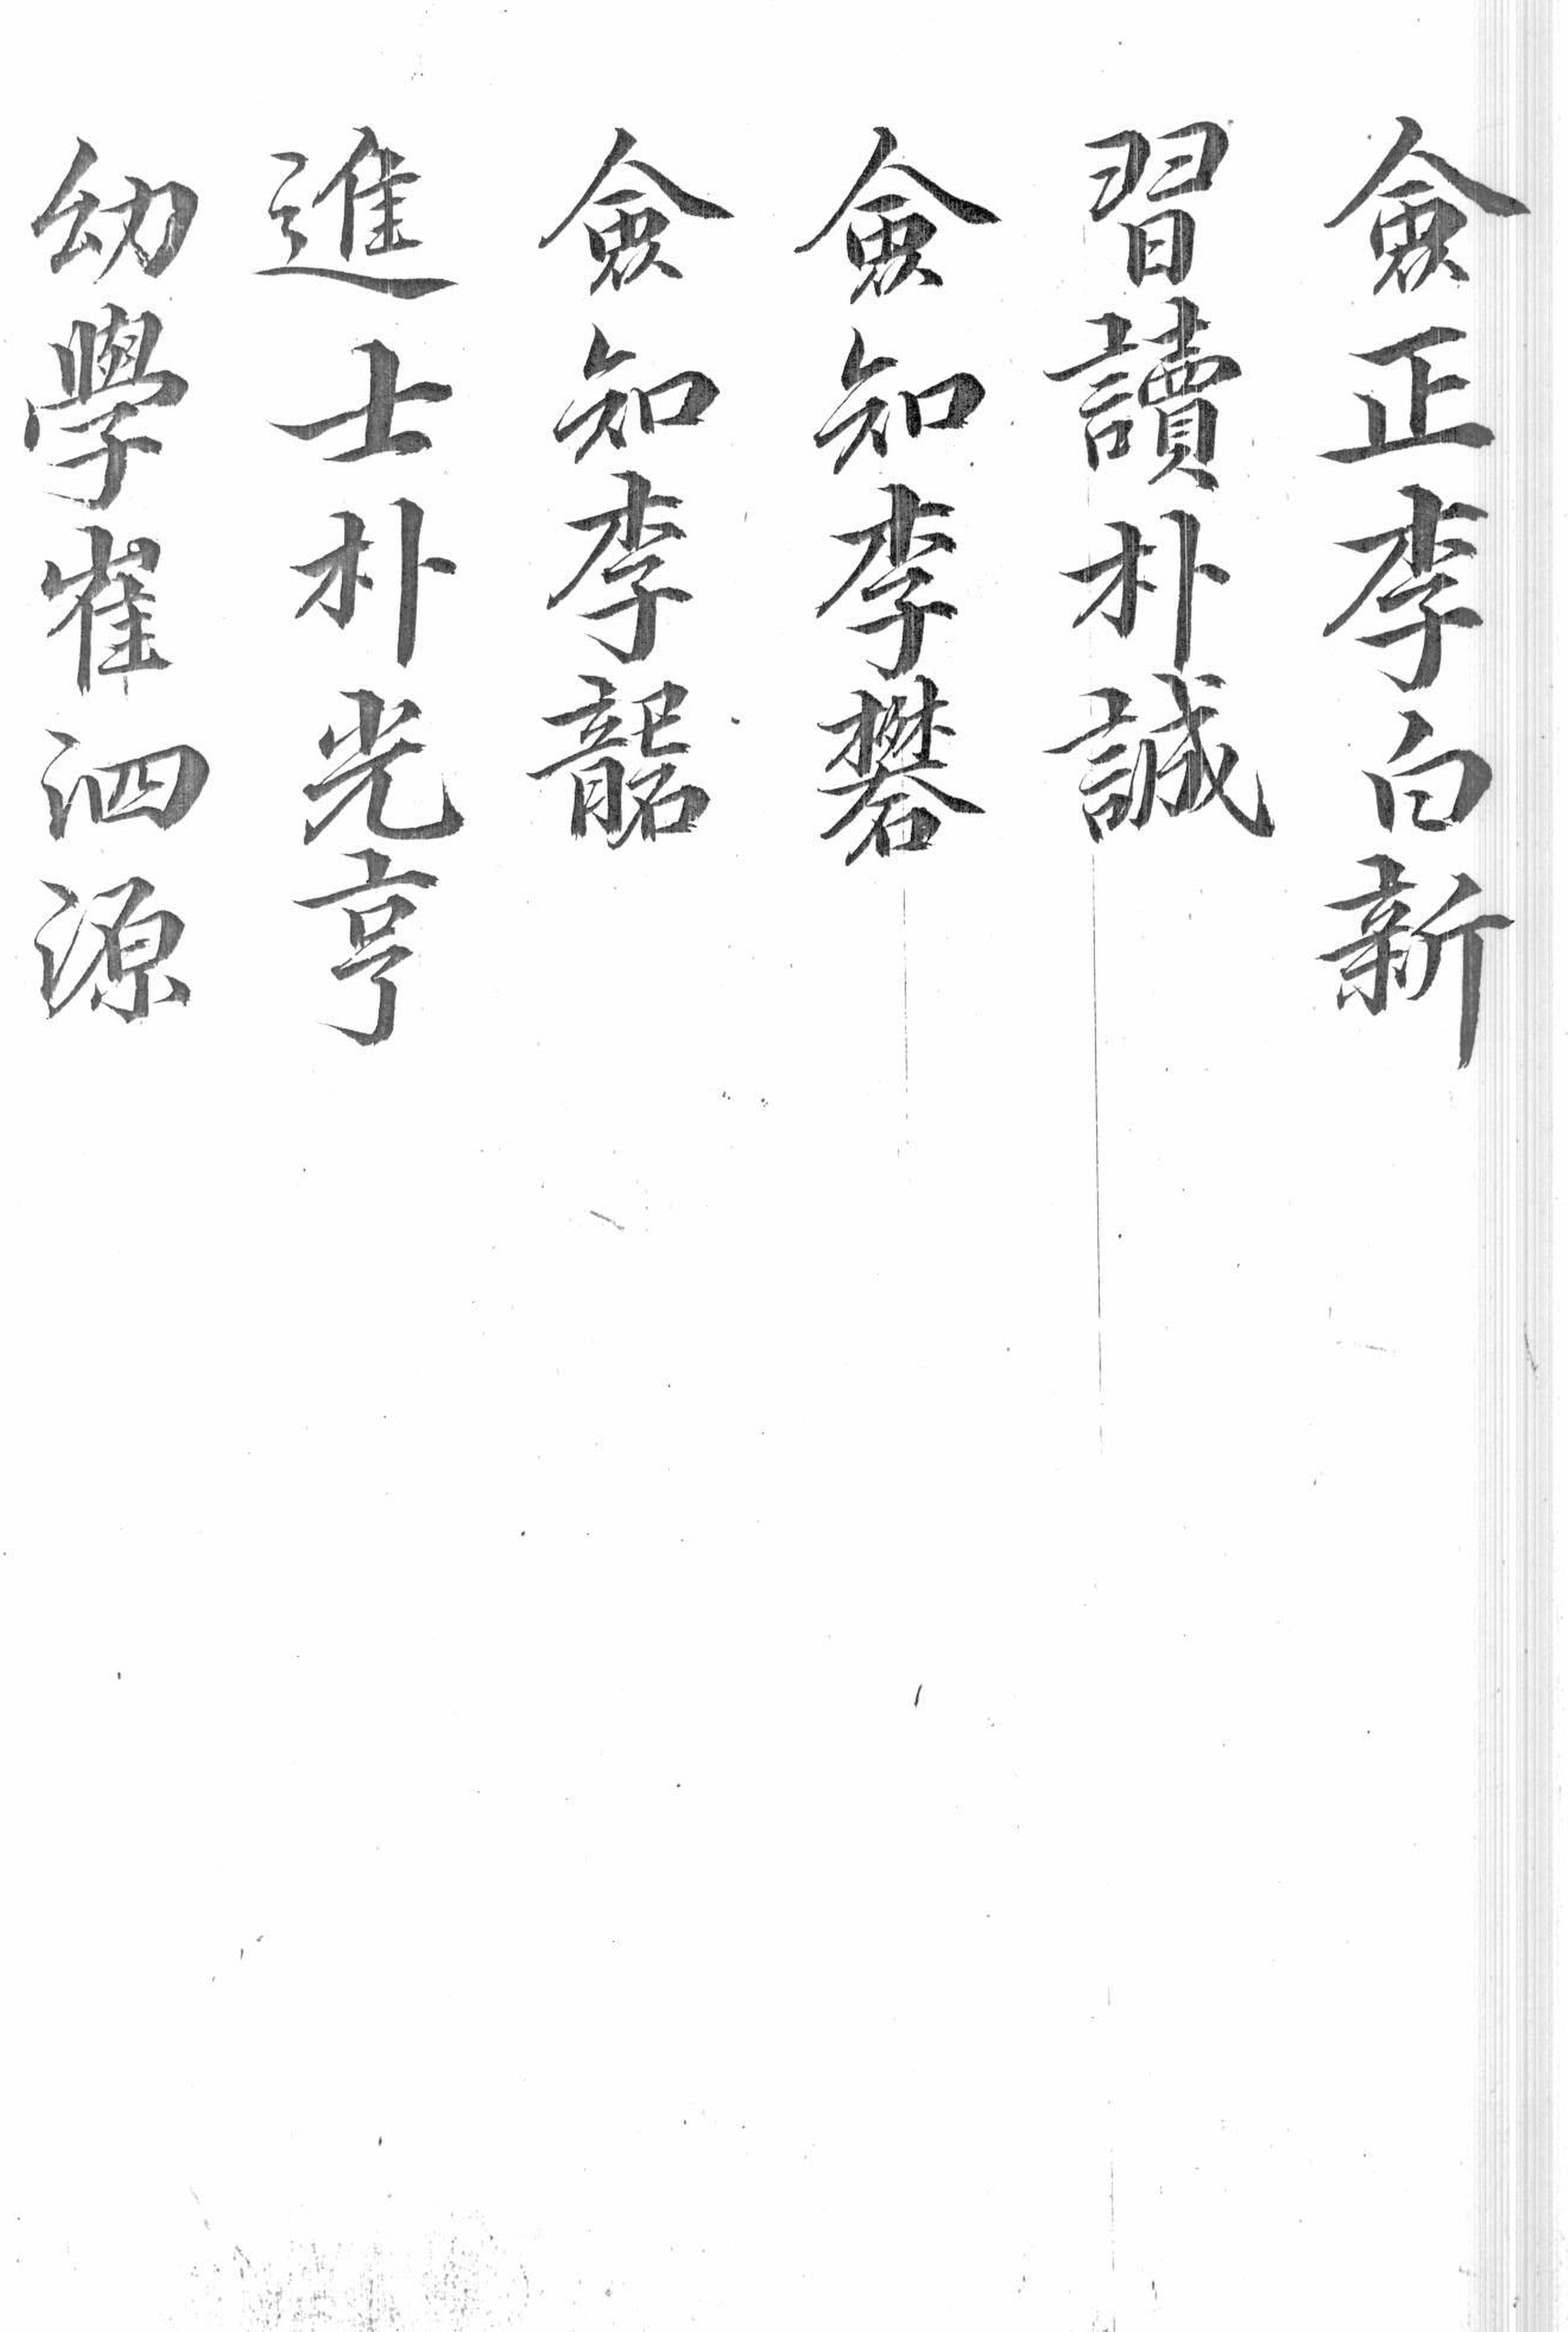 僉正李白新
習讀朴誠
僉知李礬
僉知李礱
進士朴光亨
幼學崔泗源